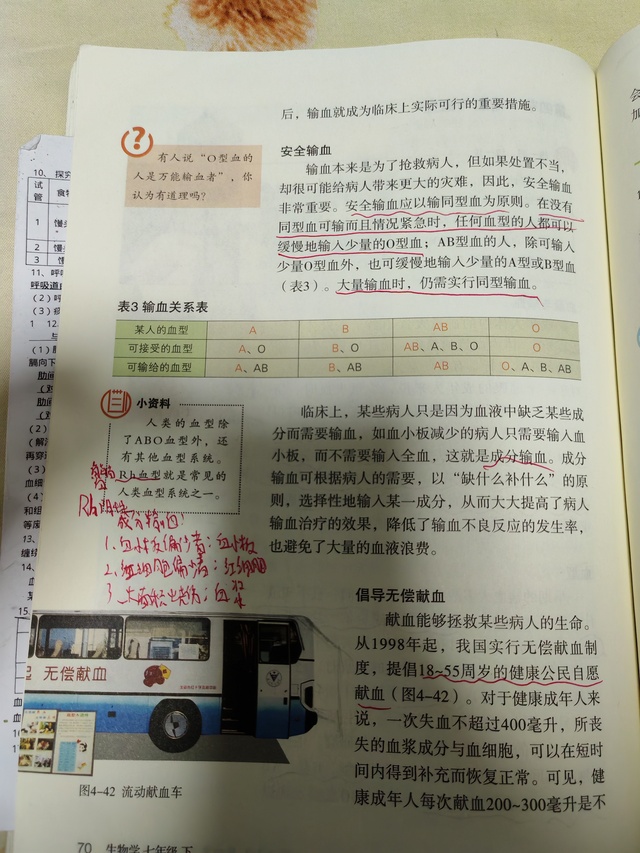 后，输血就成为临床上实际可行的重要措施。
有人说“O型血的
人是万能输血者”，你
认为有道理吗？
安全输血
输血本来是为了抢救病人，但如果处置不当，
却很可能给病人带来更大的灾难，因此，安全输血
非常重要。安全输血应以输同型血为原则。在没有
同型血可输而且情况紧急时，任何血型的人都可以
缓慢地输入少量的O型血；AB型血的人，除可输入
少量O型血外，也可缓慢地输入少量的A型或B型血
（表3）。大量输血时，仍需实行同型输血。
表3 输血关系表
某人的血型 A B AB O
可接受的血型 A、O B、O AB、A、B、O O
可输给的血型 A、AB B、AB AB O、A、B、AB
小资料
人类的血型除
了ABO血型外，还
有其他血型系统。
Rh血型就是常见的
人类血型系统之一。
成分输血
1、血小板偏少者：血小板
2、红细胞偏少者：红细胞
3、大面积烧伤：血浆
临床上，某些病人只是因为血液中缺乏某些成
分而需要输血，如血小板减少的病人只需要输入血
小板，而不需要输入全血，这就是成分输血。成分
输血可根据病人的需要，以“缺什么补什么”的原
则，选择性地输入某一成分，从而大大提高了病人
输血治疗的效果，降低了输血不良反应的发生率，
也避免了大量的血液浪费。
倡导无偿献血
献血能够拯救某些病人的生命。
从1998年起，我国实行无偿献血制
度，提倡18~55周岁的健康公民自愿
献血（图4-42）。对于健康成年人来
说，一次失血不超过400毫升，所丧
失的血浆成分与血细胞，可以在短时
间内得到补充而恢复正常。可见，健
康成年人每次献血200~300毫升是不
无偿献血
图4-42 流动献血车
70 生物学 七年级 下